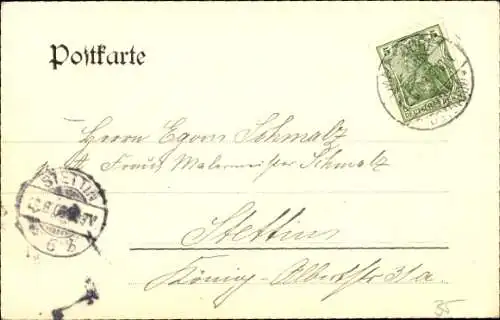 Postkarte
5 5
Herrn Egon Schmalz
Malermeister Schmalz
Stettin
König-Albertstr 31a
STETTIN
35